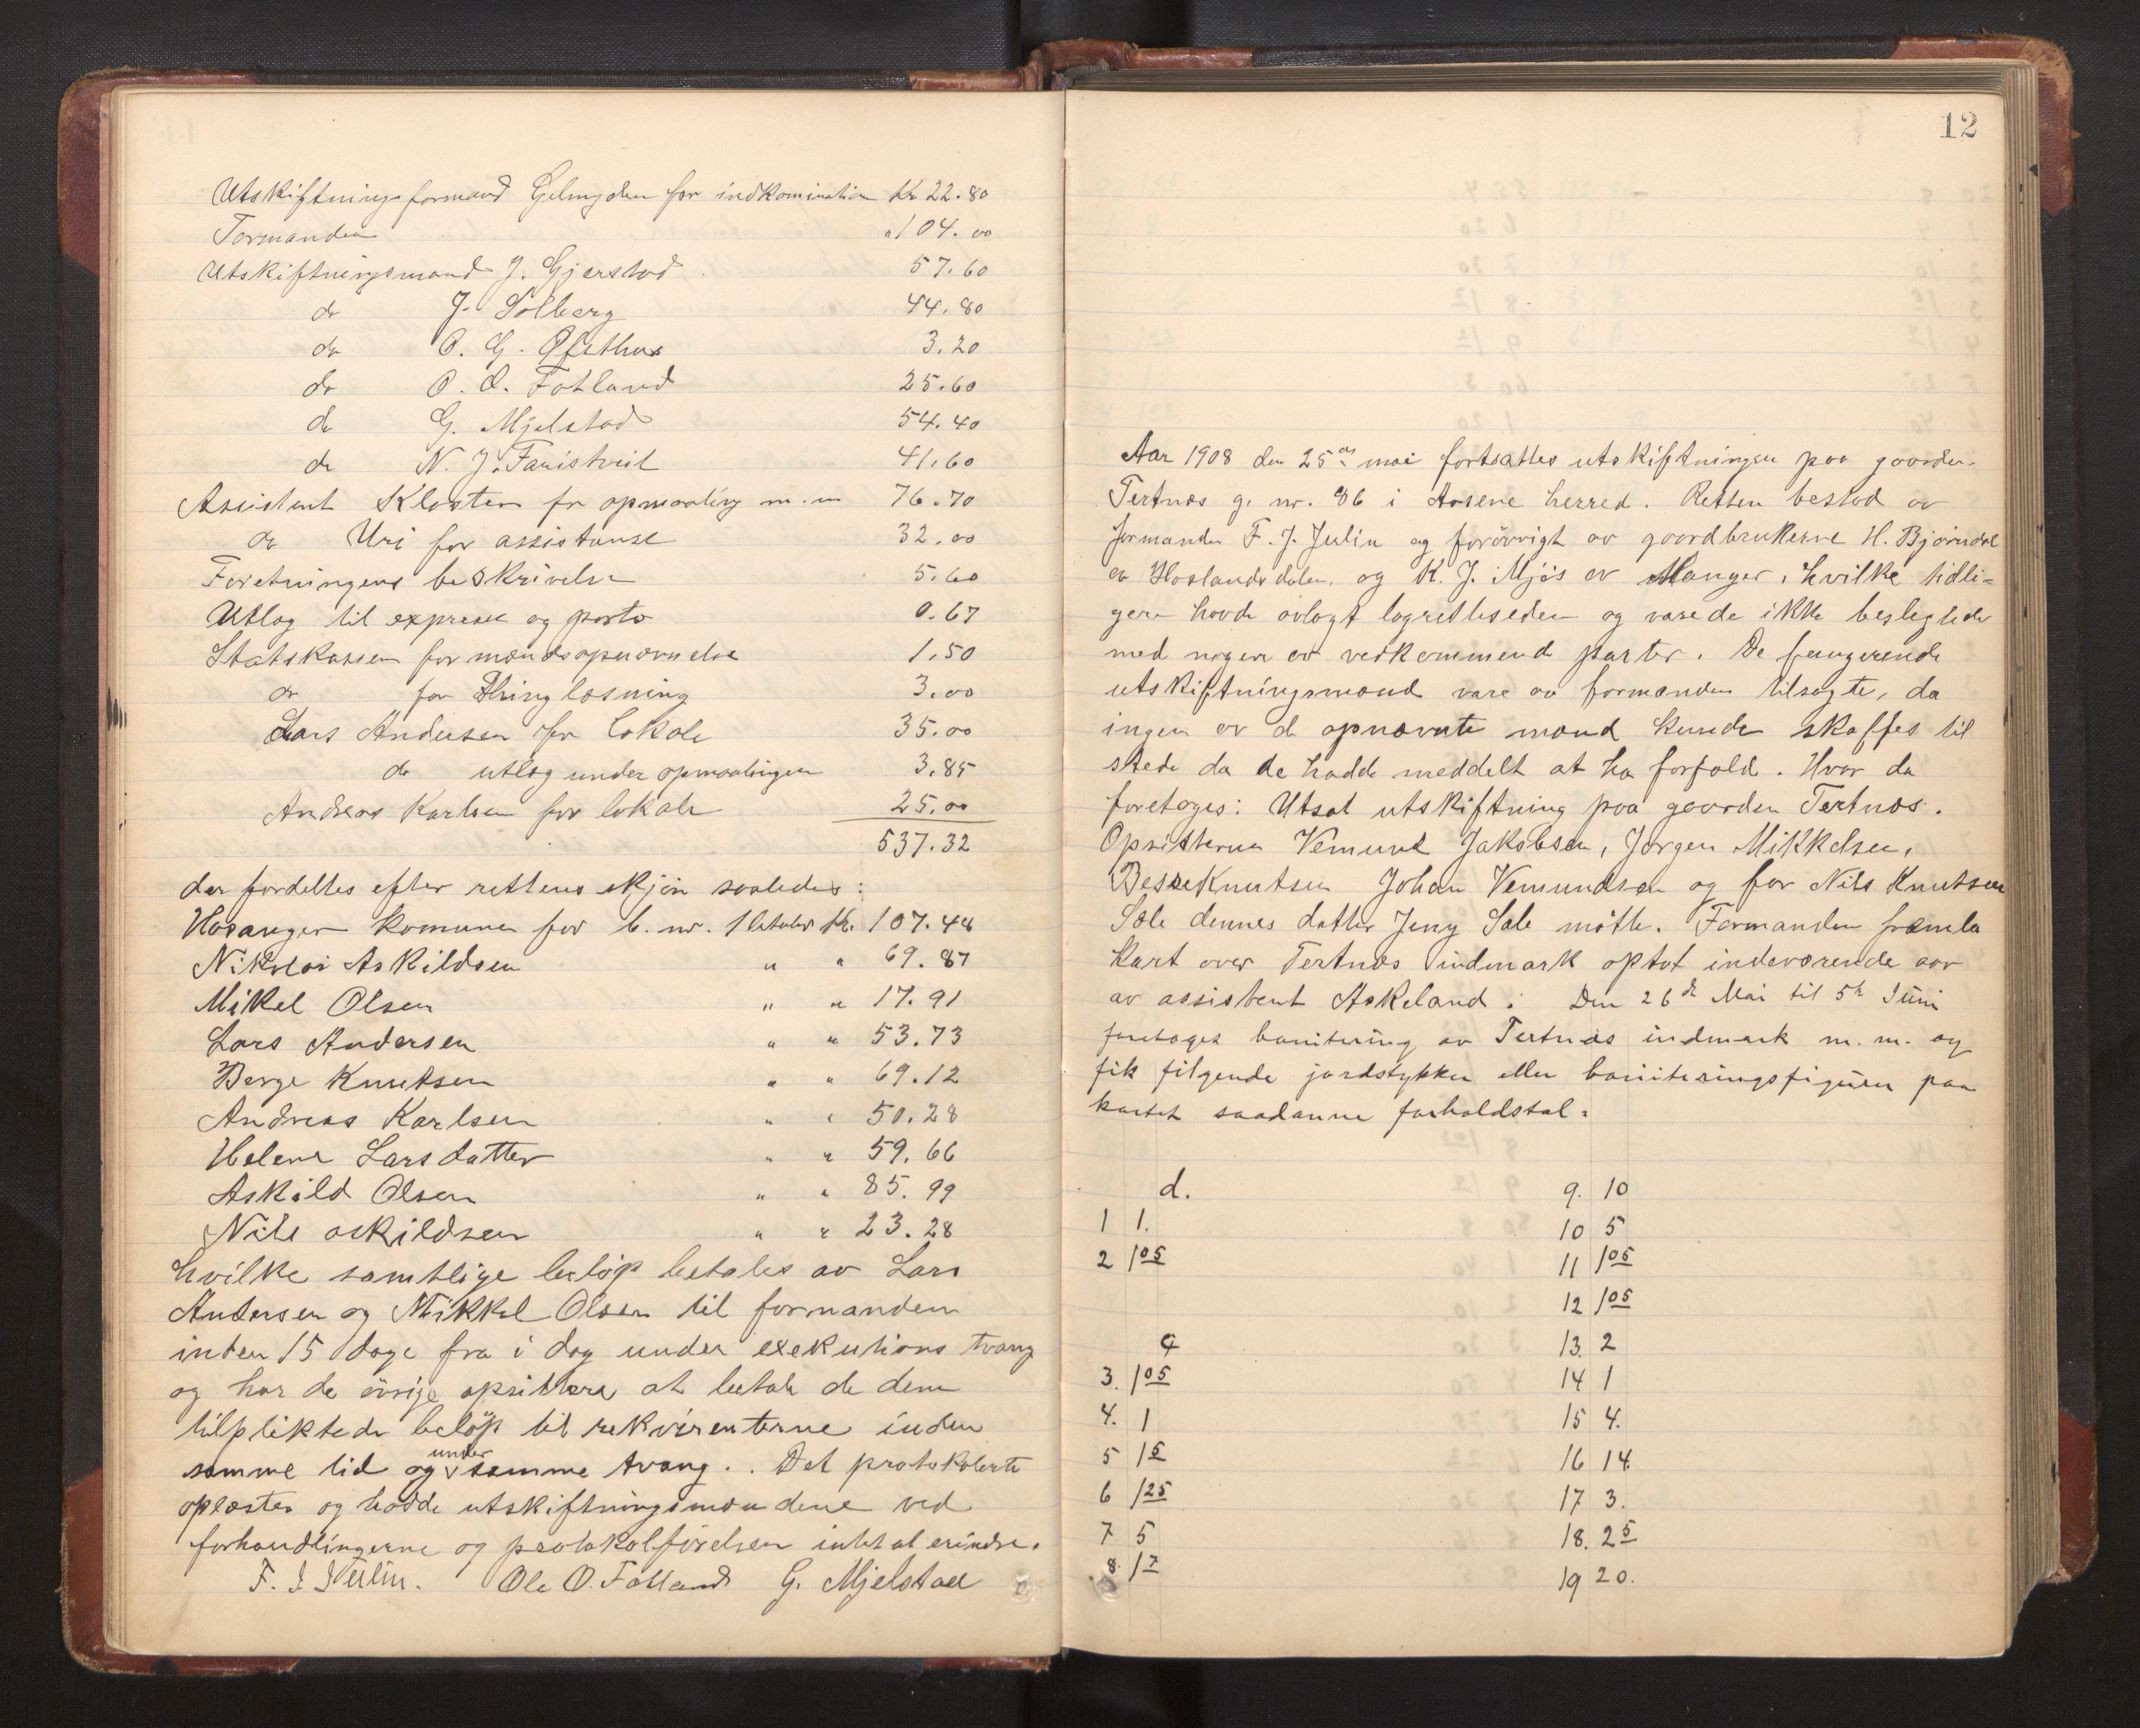 Utskiftningsformand for indkomination Kr 22.80
Formanden " 104.00
Utskiftningsmand J. Gjerstad 57.60
do J. Solberg 44.80
do O. G. Ofsthus 3.20
do O. O. Fotland 25.60
do G. Mjelstad 54.40
do N. J. 41.60
Assistent Kloster for opmaaling m.m 76.70
do Uri for assistanse 32.00
Foretningens beskrivelse 5.60
Utlæg til expresse og porto 0.67
Statskassen for mandsopnævnelse 1.50
do for Thinglæsning 3.00
Lars Andersen for lokale 35.00
do utlæg under opmaalingen 3.85
Andreas Karlsen for lokale 25.00
537.32
der fordeltes efter rettens skjøn saaledes:
Hosanger komune for b. nr. 1 betaler kr. 107.48
Nikolai Askildsen " " 69.87
Mikel Olsen " " 17.91
Lars Andersen " " 53.73
Berge Knutsen " " 69.12
Andreas Karlsen " " 50.28
Helene Larsdatter " " 59.66
Askild Olsen " " 85.99
Nils Askildsen " " 23.28
hvilke samtlige beløp betales av Lars
Andersen og Mikkel Olsen til formanden
inden 15 dage fra i dag under exekutions tvang
og har de øvrige opsittere at betale de dem
tilpliktede beløp til rekvirenterne inden
samme tid og under samme tvang. . Det protokolerte
oplæstes og hadde utskiftningsmændene ved
forhandlingerne og protokolførelsen intet at erindre.
F. J. Julin. Ole O. Fotland G. Mjelstad
12
Aar 1908 den 25de mai fortsattes utskiftningen paa gaarden
Tertnæs g. nr. 86 i Aasene herred. Retten bestod av
formanden F. J. Julin og forøvrigt av gaardbrukerne H. Bjørndal
av Haslandsdalen, og K. J. Mjøs av Manger, hvilke tidli-
gere havde avlagt lagretteseden og varede ikke beslegtede
med nogen av vedkommende parter. De fungerende
utskiftningsmænd vare av formanden tilsagte, da
ingen av de opnævnte mænd kunde skaffes til
stede da de hadde meddelt at ha forfald. Hvor da
foretoges: Utsat utskiftning paa gaarden Tertnæs.
Opsitterne Vemund Jakobsen, Jørgen Mikkelsen,
Knutsen Johan Vemundsen og for Nils Knutsen
Sæle dennes datter Jeny Sæle møtte. Formanden fremla
kart over Tertnæs indmark optat indeværende aar
av assistent Askeland. Den 26de Mai til 5te Juni
foretoges bonitering av Tertnæs indmark m. m. og
fik følgende jordstykker eller boniteringsfigurer paa
kartet saadanne forholdstal:
d.
1 1.
2 1 05
c
3. 1 05
4. 1
5 1 5
6 1 25
7 5
8. 1 7
9. 10
10 5
11 1 05
12 1 05
13. 2
14 1
15 4.
16 14
17 3.
18. 2 5
19 20.